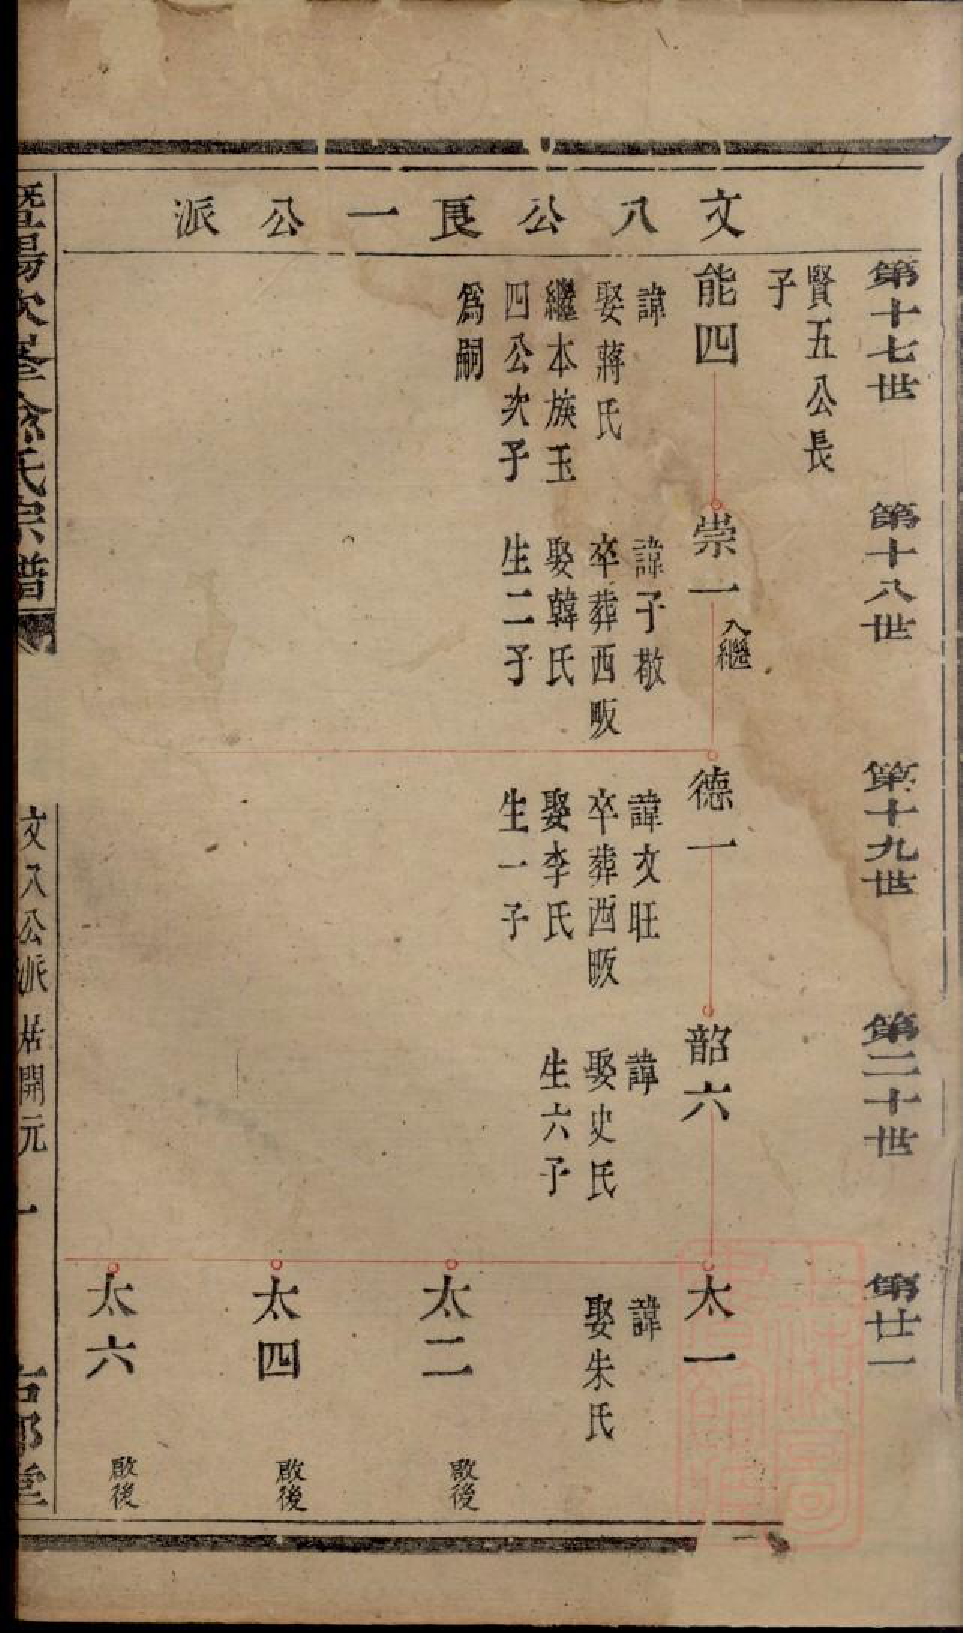 文八公良一公派
第十七世
賢五公長
子
能四
諱
娶蔣氏
繼本族玉
四公次子
爲嗣
第十八世
崇一
入繼
諱子敬
卒葬西畈
娶韓氏
生二子
第十九世
德一
諱文旺
卒葬西畈
娶李氏
生一子
第二十世
韶六
諱
娶史氏
生六子
第廿一
太一
諱
娶朱氏
太二
啟後
太四
啟後
太六
啟後
暨陽次峯俞氏宗譜
文八公派居開元
一